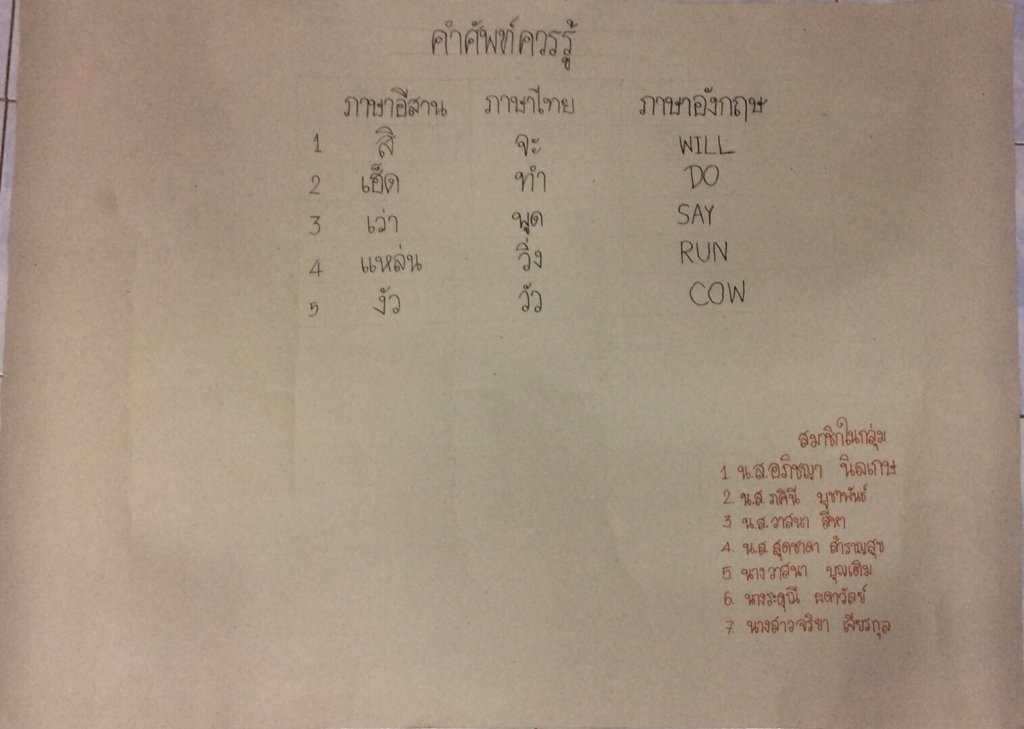 คำศัพท์ควรรู้
ภาษาอีสาน ภาษาไทย ภาษาอังกฤษ
1 สิ จะ WILL
2 เฮ็ด ทำ DO
3 เว่า พูด SAY
4 แหล่น วิ่ง RUN
5 งัว วัว COW
สมาชิกในกลุ่ม
1. น.ส.อภิชญา นิลเกษ
2. น.ส.ภคินี บูชาพันธ์
3. น.ส.วาสนา สีหา
4. น.ส.สุดชาดา สำราญสุข
5. นางวาสนา บุญเติม
6. นางระตุณี ผดาวัลย์
7. นางสาวจริยา เจียรกุล